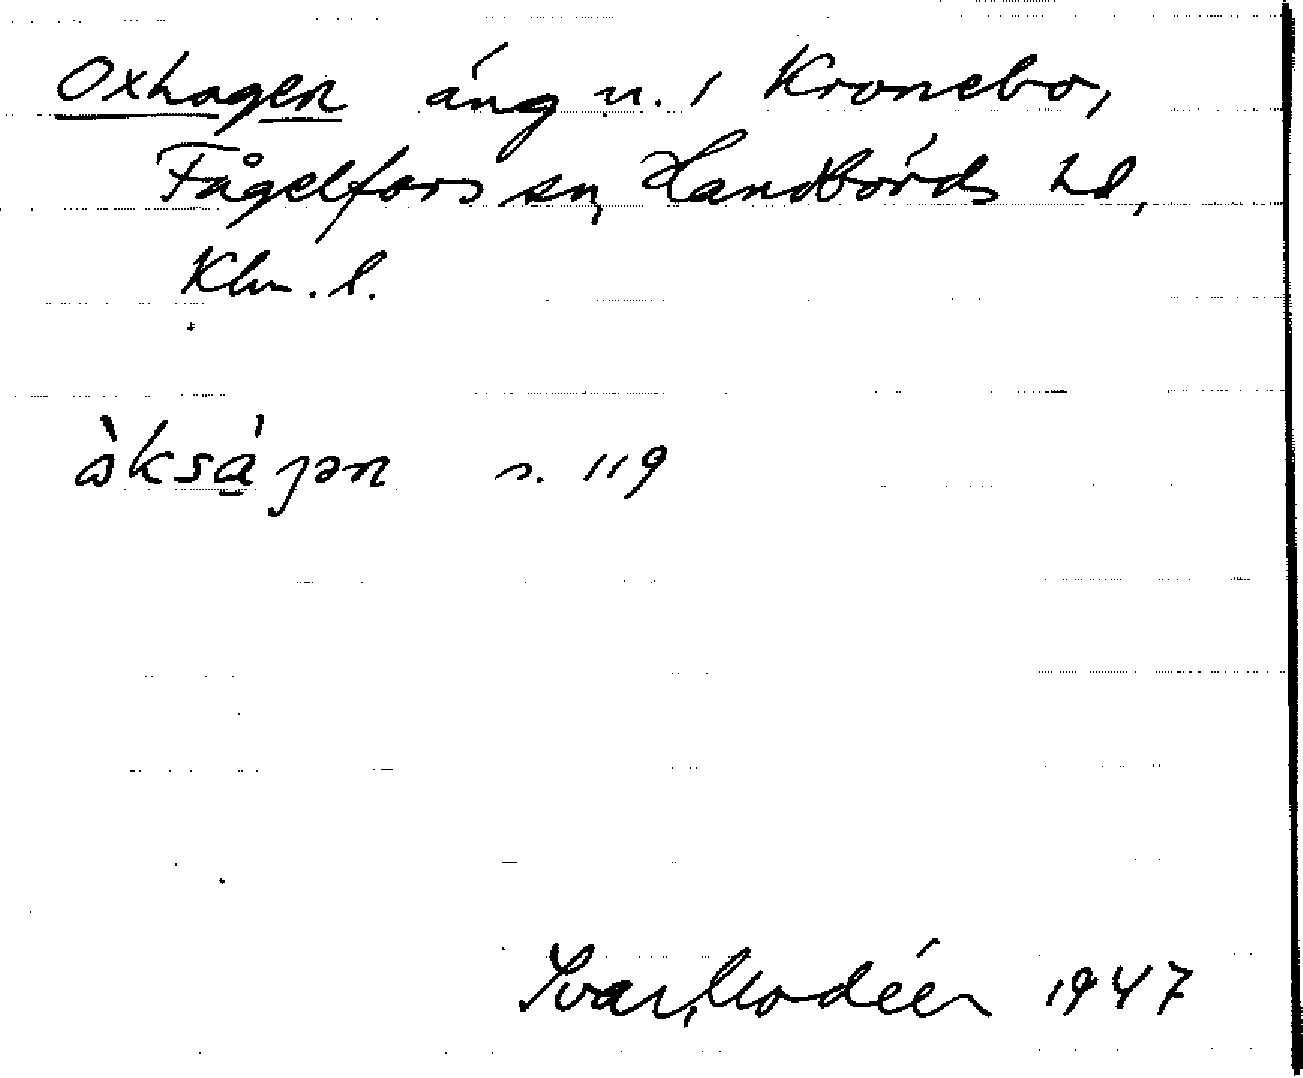 Oxhagen äng n. i Kronebo,
Fågelfors sn, Handbörds hd,
Klm. l.
s. 119
Ivar Modéer 1947